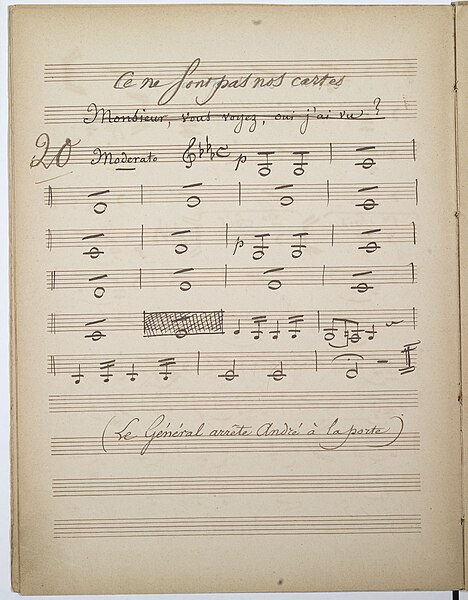 Ce ne sont pas nos cartes
Monsieur, vous voyez, oui j'ai vu ?
20 Moderato p
p
(Le Général arrête André à la porte)